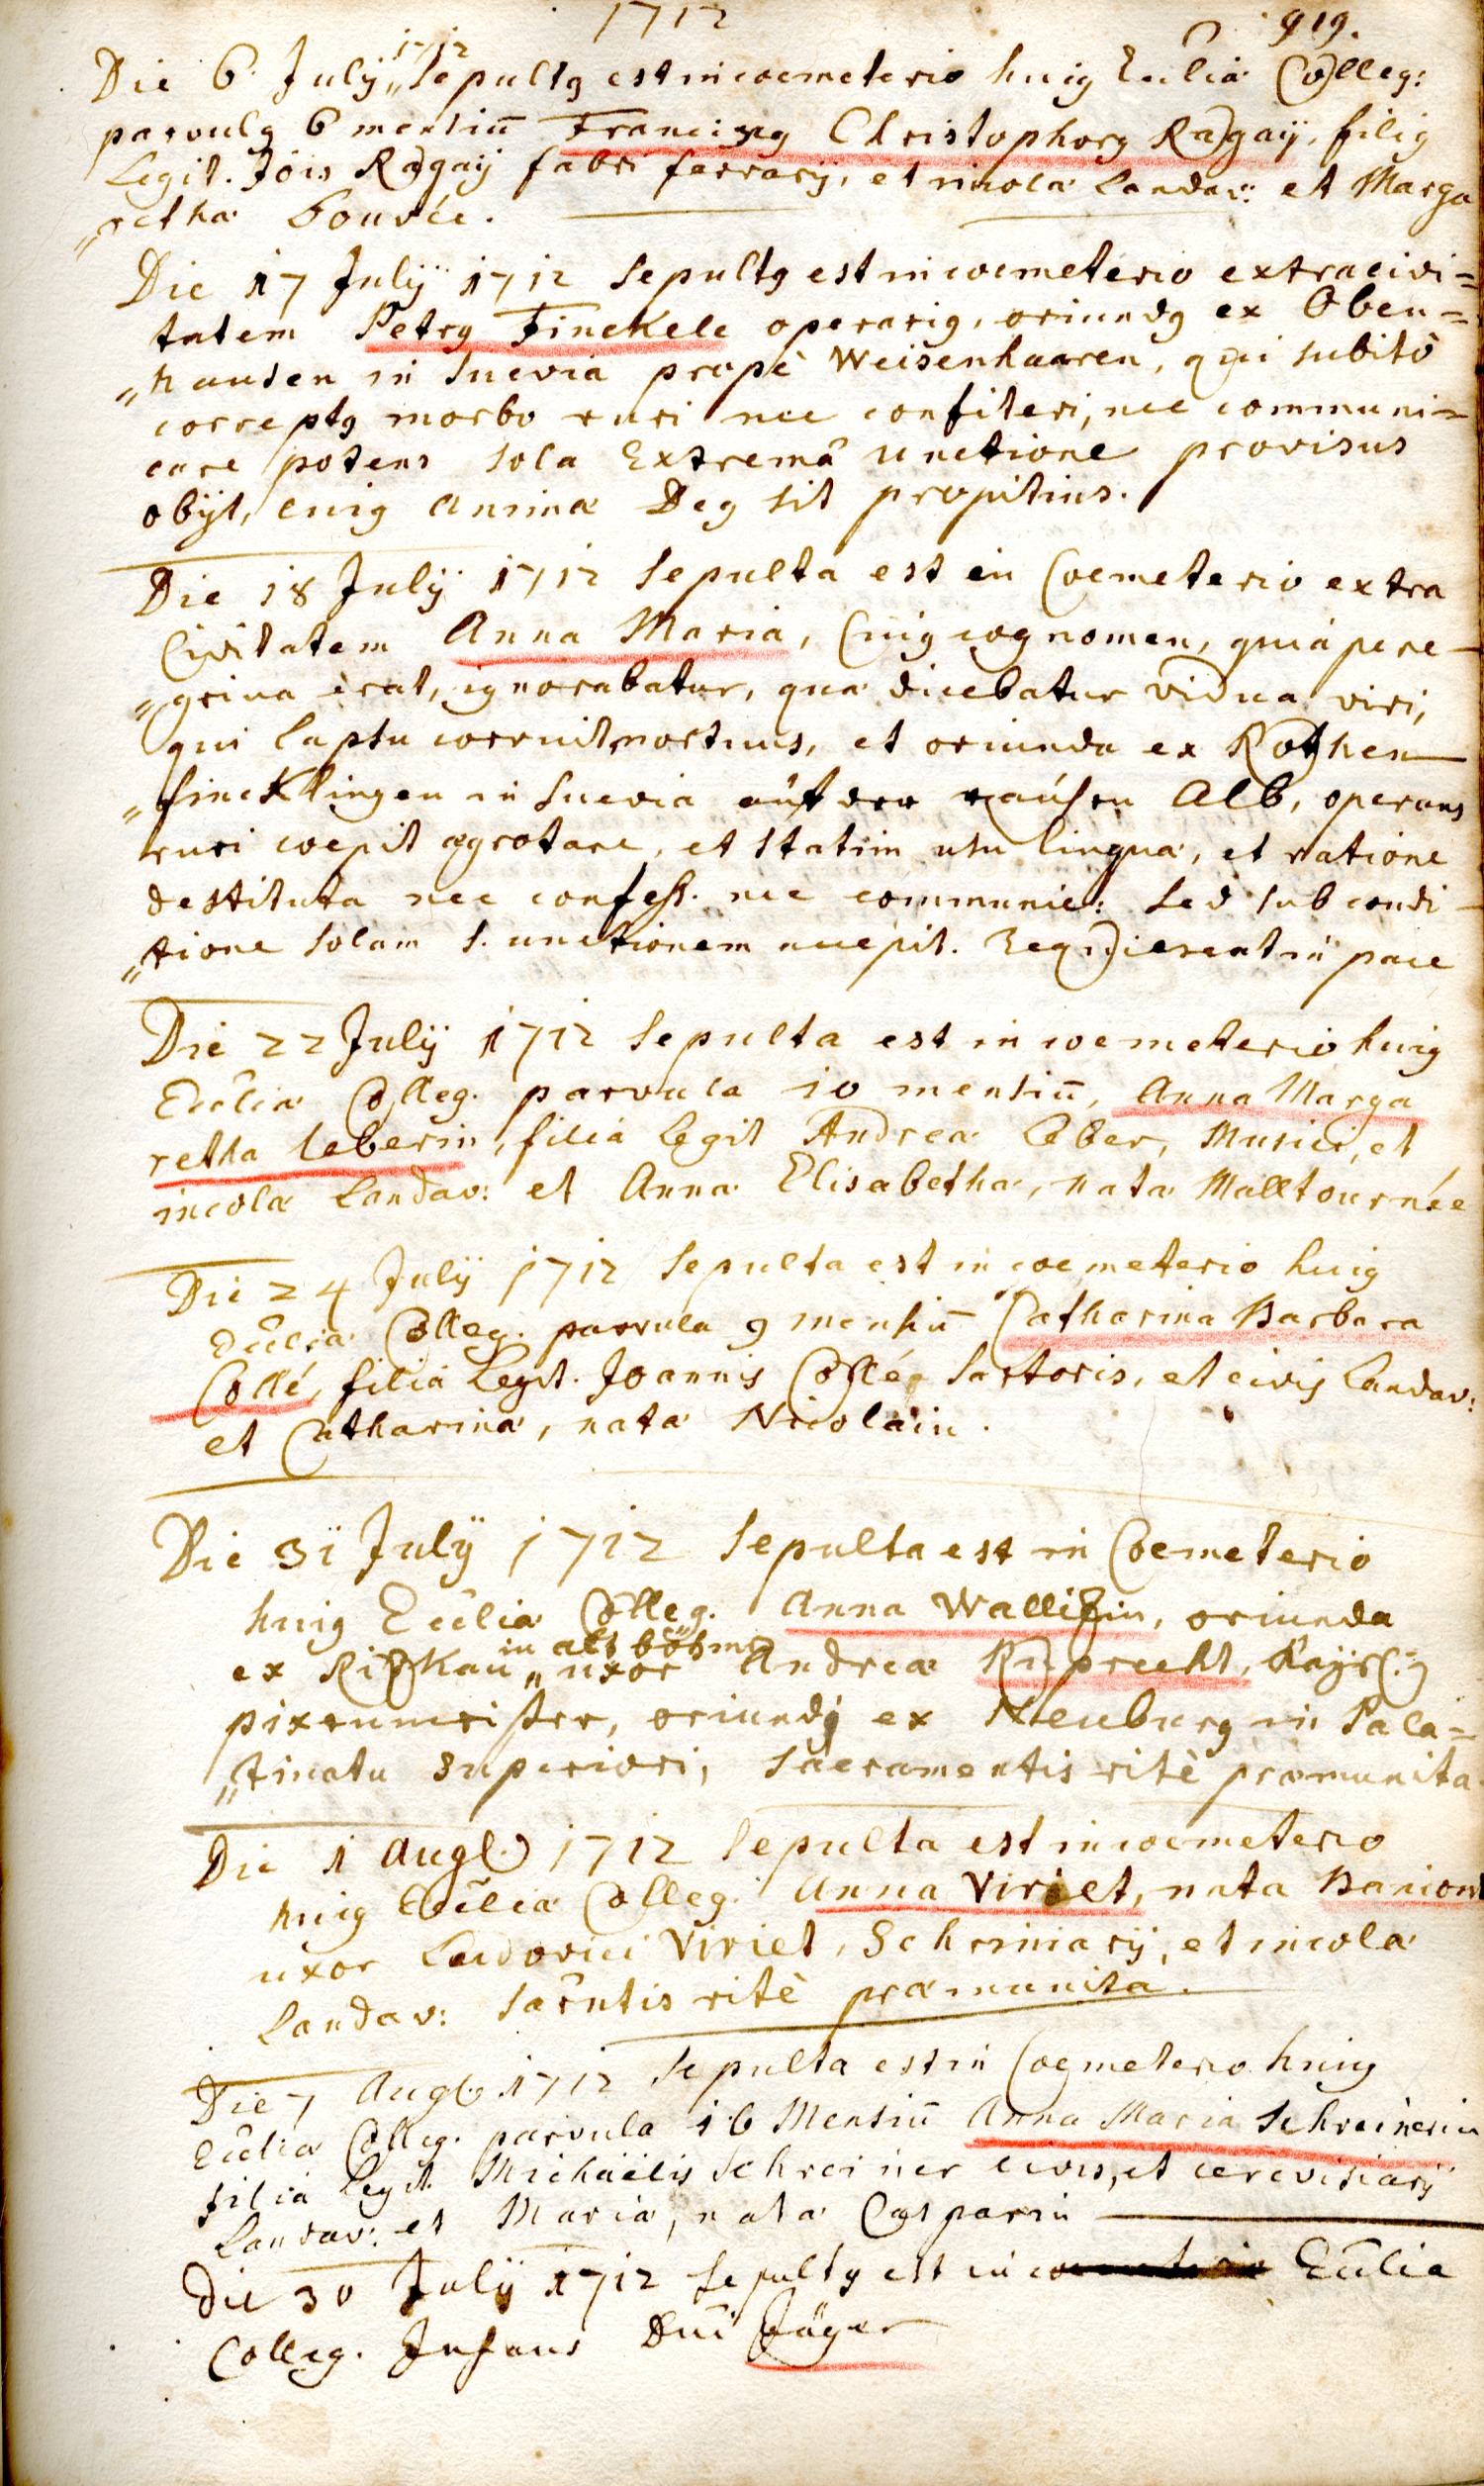 1712
919.
Die 6 Julÿ 1712 „Sepultg est in coemeterio huig Ecclia Colleg:
parvulg 6 mensiū Franciscg Christophorg Ragaÿ, filig
Legit. Jois Ragaÿ fabri ferrarÿ, et incola Landav: et Marga
„retha Bouvée.
Die 17 Julÿ 1712 Sepultg est in coemeterio extra civi=
tatem Petrg Finckele operarig, oriundg ex Oben=
„hausen in Suevia propè Weisenhaaren, qui subitò
correptg morbo ruri nec confiteri, nec communi=
care potens sola Extremâ unctione provisus
obÿt, cuig anima Deg sit propitius.
Die 18 Julÿ 1712 Sepulta est in Coemeterio extra
Civitatem Anna Maria, Cuig cognomen, quia pere-
„grina erat, ignorabatur, qua dicebatur vidua viri,
qui lapsu corruit mortuus, et oriunda ex Rothen
„fincklingen in Suevia auf der rausen Alb, operans
ruri coepit ægrotare, et statim usu lingua, et ratione
destituta nec confess. nec communic: sed sub condi-
„tione solam s. unctionem accepit. Requiescat in pace
Die 22 Julÿ 1712 Sepulta est in coemeterio huig
Ecclia Colleg. parvula 10 mensiū, Anna Marga
retha Leberin, filia legit Andrea Leber, Musici, et
incola Landav: et Anna Elisabetha, nata Malltournée
Die 24 Julÿ 1712 Sepulta est in coemeterio huig
Ecclia Colleg. parvula 9 mensiū Catharina Barbara
Collé, filia Legit. Joannis Collé, Sartoris, et civis Landav:
et Catharina, nata Nicolain.
Die 31 Julÿ 1712 Sepulta est in Coemeterio
huig Ecclia Colleg. Anna Wallizin, oriunda
in alt böhmen
ex Rizkau „uxor Andrea Ruprecht, Kaÿs:
pixenmeister, oriundj ex Neuburg in Pala=
„tinatu superiori, Sacramentis ritè præmunita
Die 1 Augt 1712 Sepulta est in coemeterio
huig Ecclia Colleg. Anna Viriet, nata Baniont
uxor Ludovici Viriet, Schriniarÿ, et incola
Landav: Sacntis ritè præmunita.
Die 7 Augt 1712 Sepulta est in Coemeterio huig
Ecclia Colleg. parvula 16 Mensiū Anna Maria Schreinerin
filia legit. Michaëlis Schreiner civis, et cerevisiarÿ
Landav: et Maria, nata Casparin
Die 30 Julÿ 1712 Sepultg est in coemeterio Ecclia
Colleg. Infans Dni Jäger